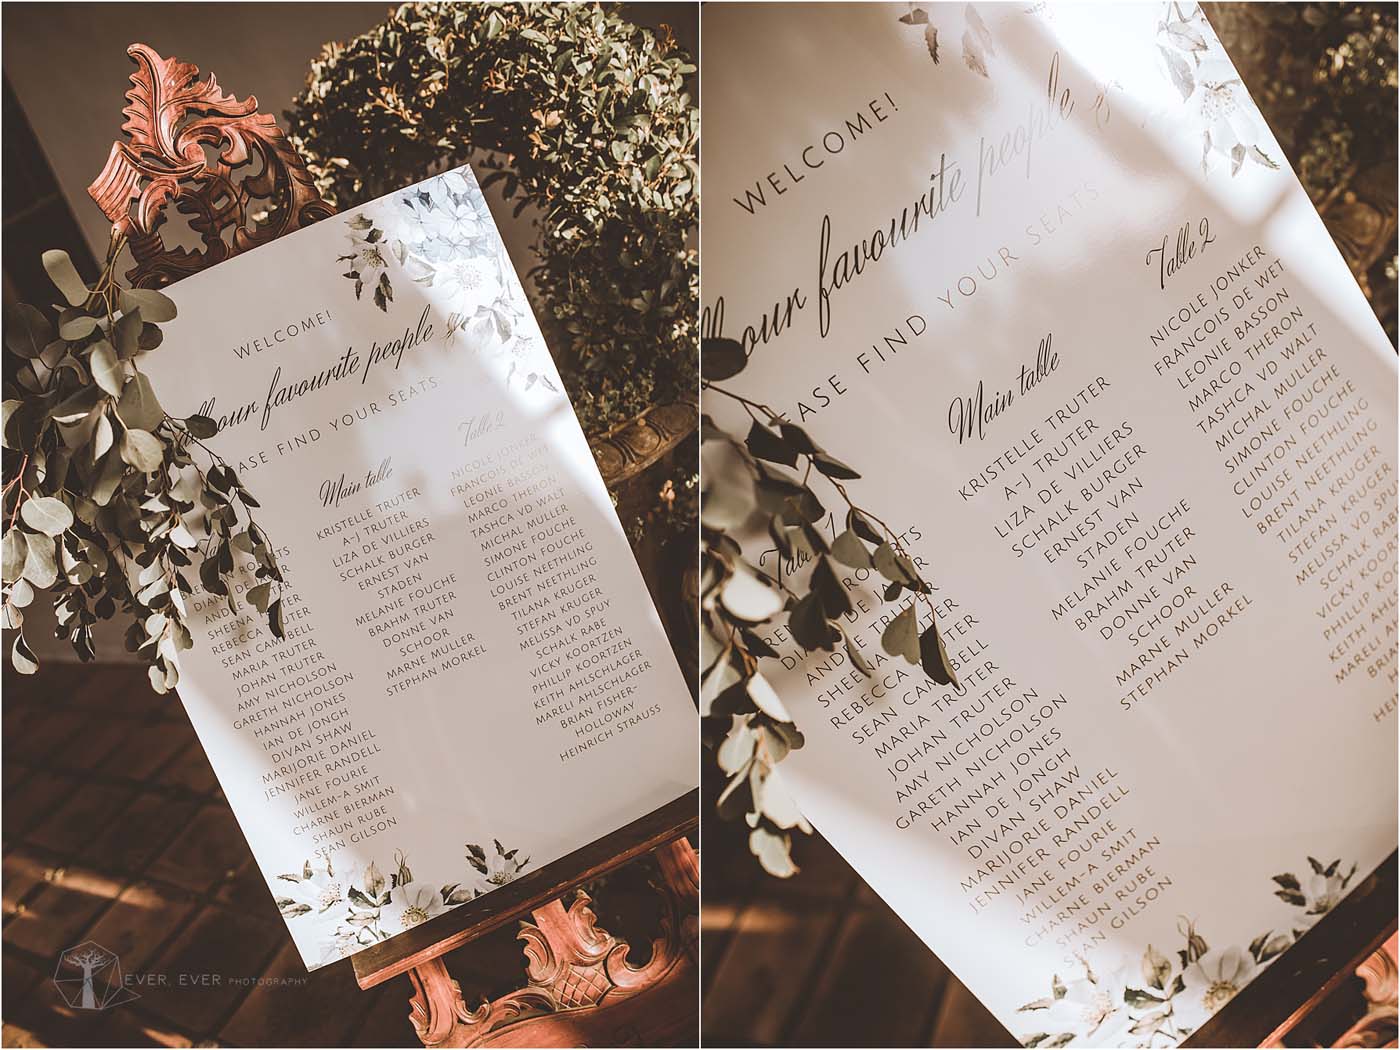 WELCOME!
our favourite people
FIND YOUR SEATS.
Main table
KRISTELLE TRUTER
A-J TRUTER
LIZA DE VILLIERS
SCHALK BURGER
ERNEST VAN
STADEN
MELANIE FOUCHE
BRAHM TRUTER
DONNE VAN
SCHOOR
MARNE MULLER
STEPHAN MORKEL
Table 2
NICOLE JONKER
FRANCOIS DE WET
LEONIE BASSON
MARCO THERON
TASHCA VD WALT
MICHAL MULLER
SIMONE FOUCHE
CLINTON FOUCHE
LOUISE NEETHLING
BRENT NEETHLING
TILANA KRUGER
STEFAN KRUGER
MELISSA VD SPUY
SCHALK RABE
VICKY KOORTZEN
PHILLIP KOORTZEN
KEITH AHLSCHLAGER
MARELI AHLSCHLAGER
BRIAN FISHER-
HOLLOWAY
HEINRICH STRAUSS
REBECCA
SEAN CAMPBELL
MARIA TRUTER
JOHAN TRUTER
AMY NICHOLSON
GARETH NICHOLSON
HANNAH JONES
IAN DE JONGH
DIVAN SHAW
MARIJORIE DANIEL
JENNIFER RANDELL
JANE FOURIE
WILLEM-A SMIT
CHARNE BIERMAN
SHAUN RUBE
SEAN GILSON
EVER, EVER PHOTOGRAPHY
WELCOME!
our favourite people
EASE FIND YOUR SEATS.
Main table
KRISTELLE TRUTER
A-J TRUTER
LIZA DE VILLIERS
SCHALK BURGER
ERNEST VAN
STADEN
MELANIE FOUCHE
BRAHM TRUTER
DONNE VAN
SCHOOR
MARNE MULLER
STEPHAN MORKEL
Table 2
NICOLE JONKER
FRANCOIS DE WET
LEONIE BASSON
MARCO THERON
TASHCA VD WALT
MICHAL MULLER
SIMONE FOUCHE
CLINTON FOUCHE
LOUISE NEETHLING
BRENT NEETHLING
TILANA KRUGER
STEFAN KRUGER
MELISSA VD SPU
SCHALK RAB
VICKY KOO
PHILLIP KO
KEITH AH
MARELI A
REBECCA
SEAN CAMPBELL
MARIA TRUTER
JOHAN TRUTER
AMY NICHOLSON
GARETH NICHOLSON
HANNAH JONES
IAN DE JONGH
DIVAN SHAW
MARIJORIE DANIEL
JENNIFER RANDELL
JANE FOURIE
WILLEM-A SMIT
CHARNE BIERMAN
SHAUN RUBE
SEAN GILSON